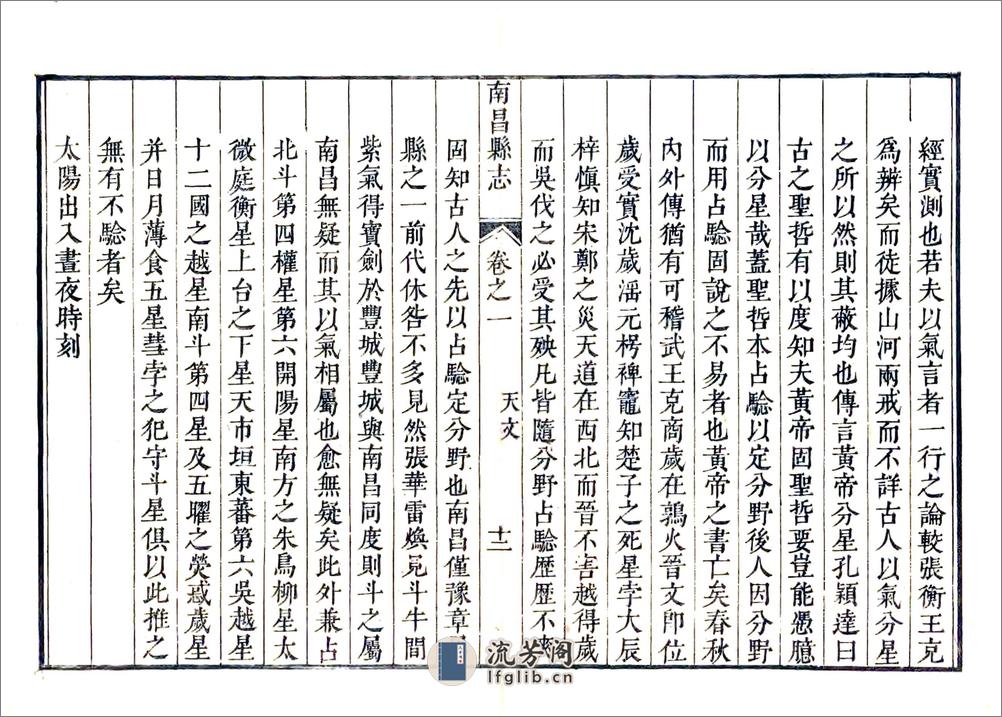 經實測也若夫以氣言者一行之論較張衡王充
爲辨矣而徒據山河兩戒而不詳古人以氣分星
之所以然則其蔽均也傳言黃帝分星孔穎達曰
古之聖哲有以度知夫黃帝固聖哲要豈能憑臆
以分星哉蓋聖哲本占驗以定分野後人因分野
而用占驗固說之不易者也黃帝之書亡矣春秋
內外傳猶有可稽武王克商歲在鶉火晉文即位
歲受實沈歲滛元枵裨竈知楚子之死星孛大辰
梓愼知宋鄭之災天道在西北而晉不害越得歲
而吳伐之必受其殃凡皆隨分野占驗歷歷不爽
南昌縣志
卷之一
天文
十二
固知古人之先以占驗定分野也南昌僅豫章
縣之一前代休咎不多見然張華雷煥見斗牛間
紫氣得寶劍於豐城豐城與南昌同度則斗之屬
南昌無疑而其以氣相屬也愈無疑矣此外兼占
北斗第四權星第六開陽星南方之朱鳥柳星太
微庭衡星上台之下星天市垣東蕃第六吳越星
十二國之越星南斗第四星及五曜之熒惑歲星
并日月薄食五星彗孛之犯守斗星俱以此推之
無有不驗者矣
太陽出入晝夜時刻
流芳阁
lfglib.cn